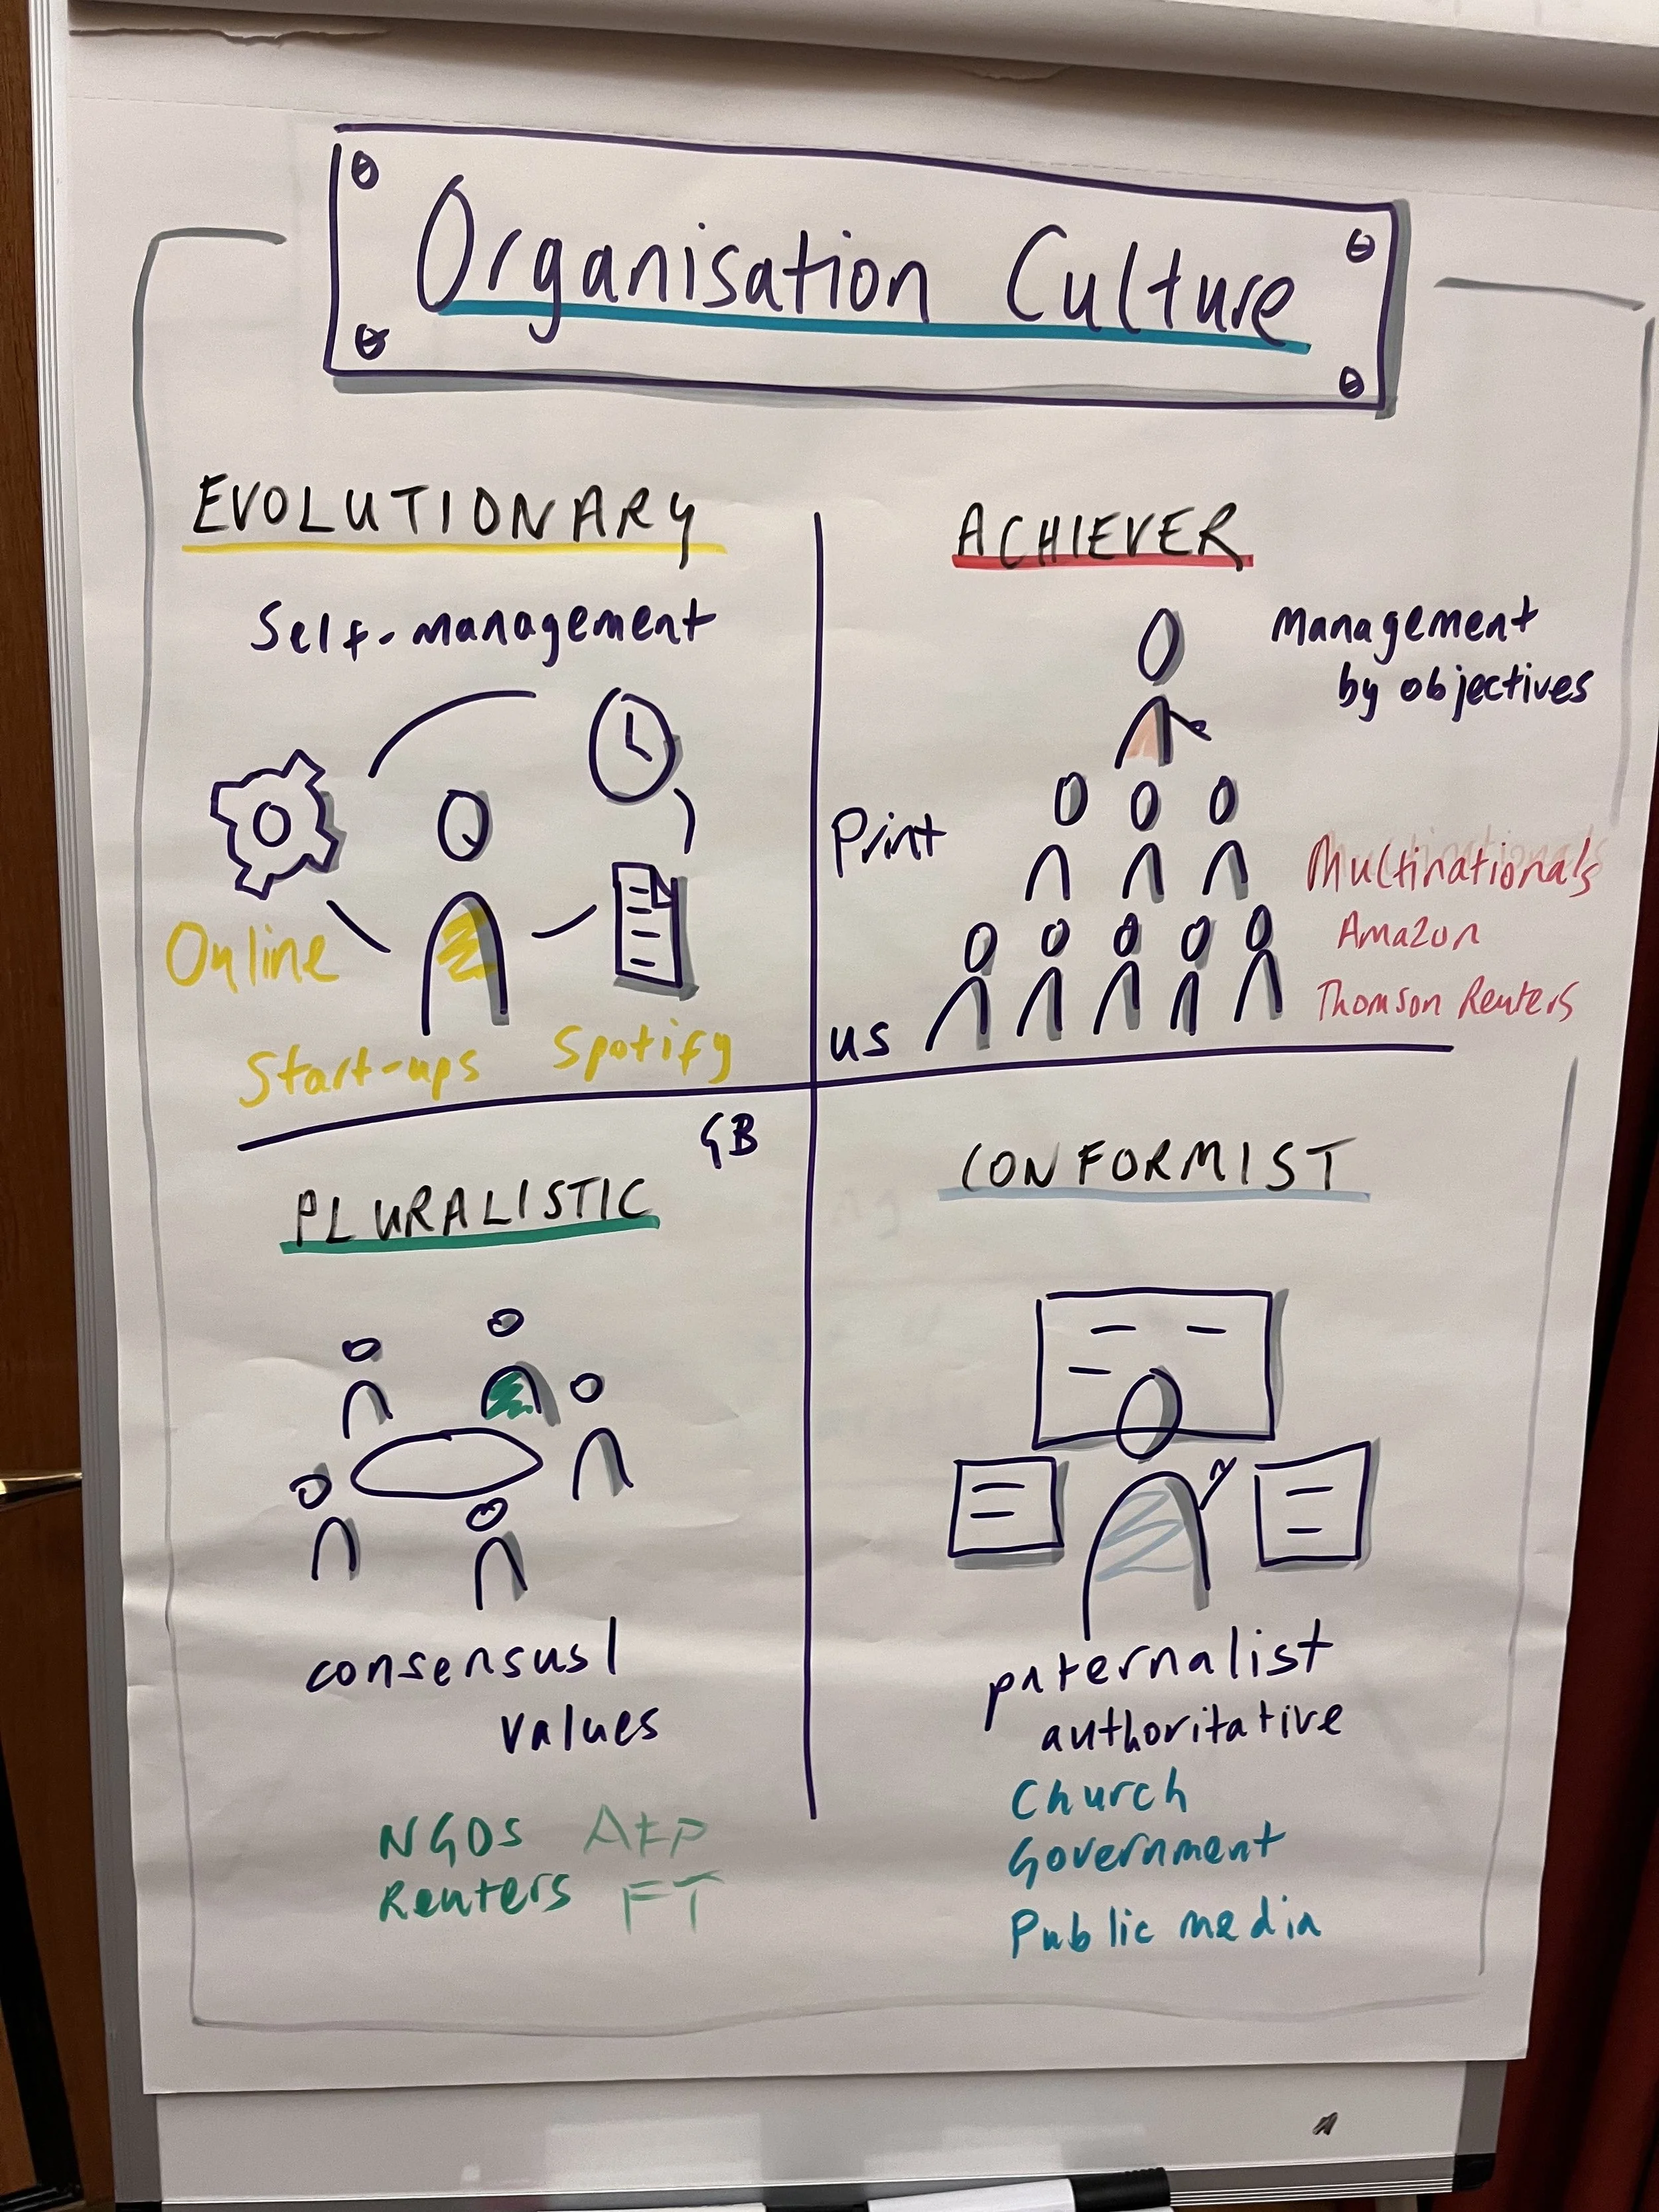 Organisation Culture
EVOLUTIONARY
Self-management
Online
Start-ups Spotify
ACHIEVER
Management
by objectives
Print
Multinationals
Amazon
Thomson Reuters
us
GB
PLURALISTIC
consensus/
values
NGOs AFP
Reuters FT
CONFORMIST
paternalist
authoritative
Church
Government
Public media